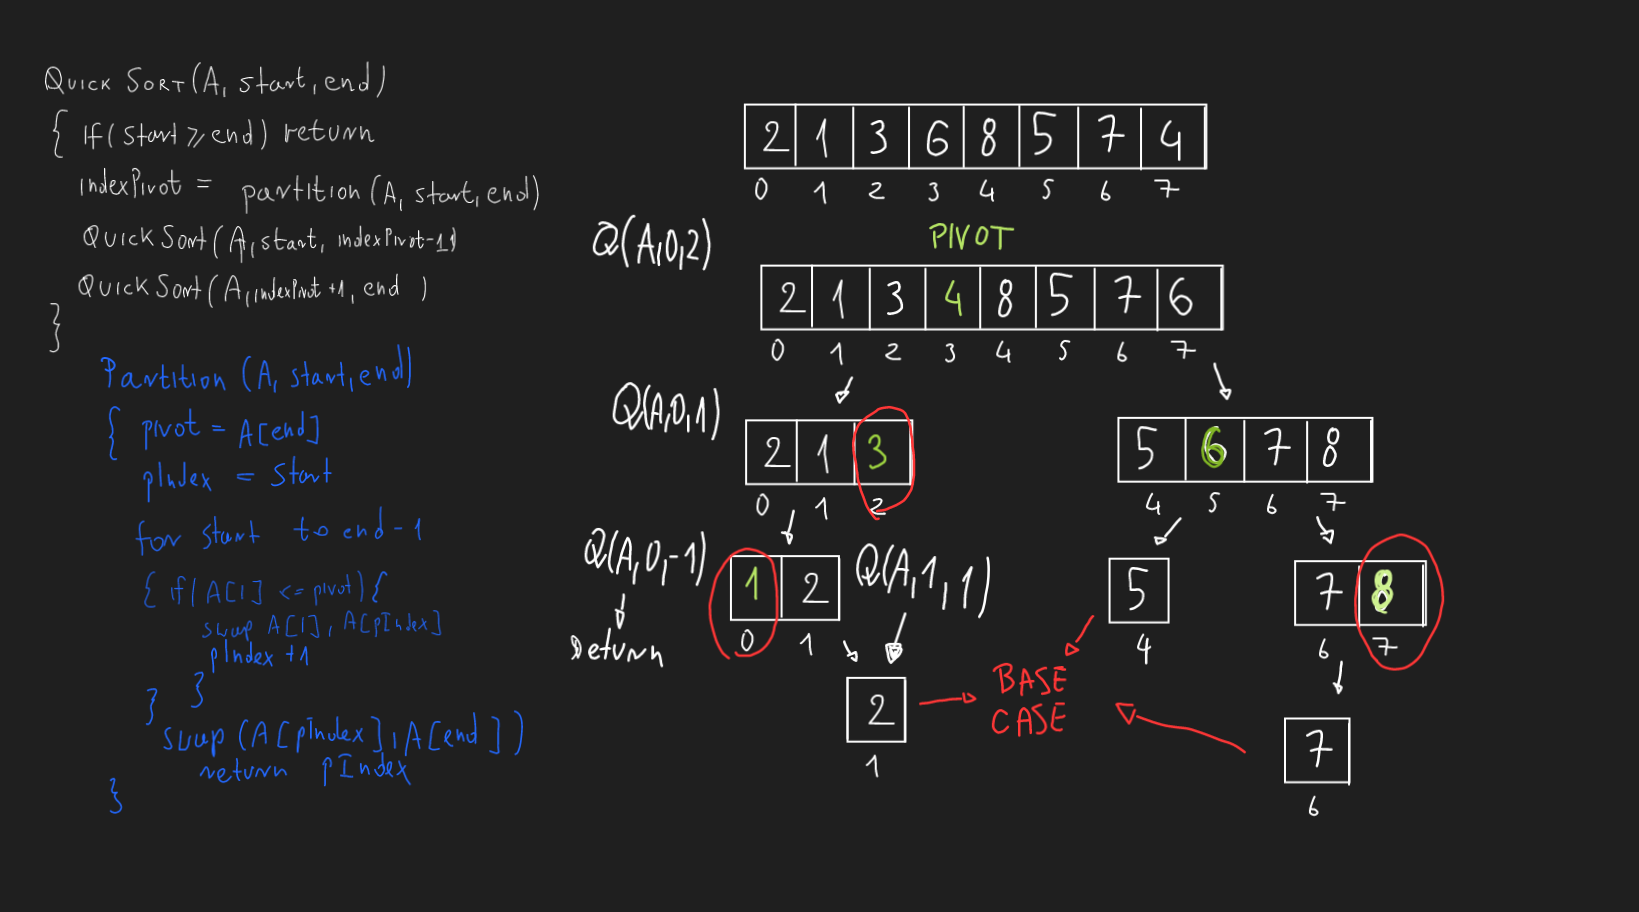 QUICK SORT(A, start, end)
{ If(start ⩾ end) return
indexPivot = partition(A, start, end)
QUICKSort(A, start, indexPivot-1)
QUICKSort(A, indexPivot+1, end )
}
Partition (A, start, end)
{ pivot = A[end]
pIndex = Start
for start to end-1
{ if( A[I] <= pivot){
swap A[I], A[pIndex]
pIndex +1
} }
swap (A[pIndex], A[end])
return pIndex
}
2 1 3 6 8 5 7 4
0 1 2 3 4 5 6 7
Q(A,0,2)
PIVOT
2 1 3 4 8 5 7 6
0 1 2 3 4 5 6 7
Q(A,0,1)
2 1 3
0 1 2
5 6 7 8
4 5 6 7
Q(A,0,-1)
return
1 2
0 1
Q(A,1,1)
2
1
5
4
7 8
6 7
7
6
BASE
CASE